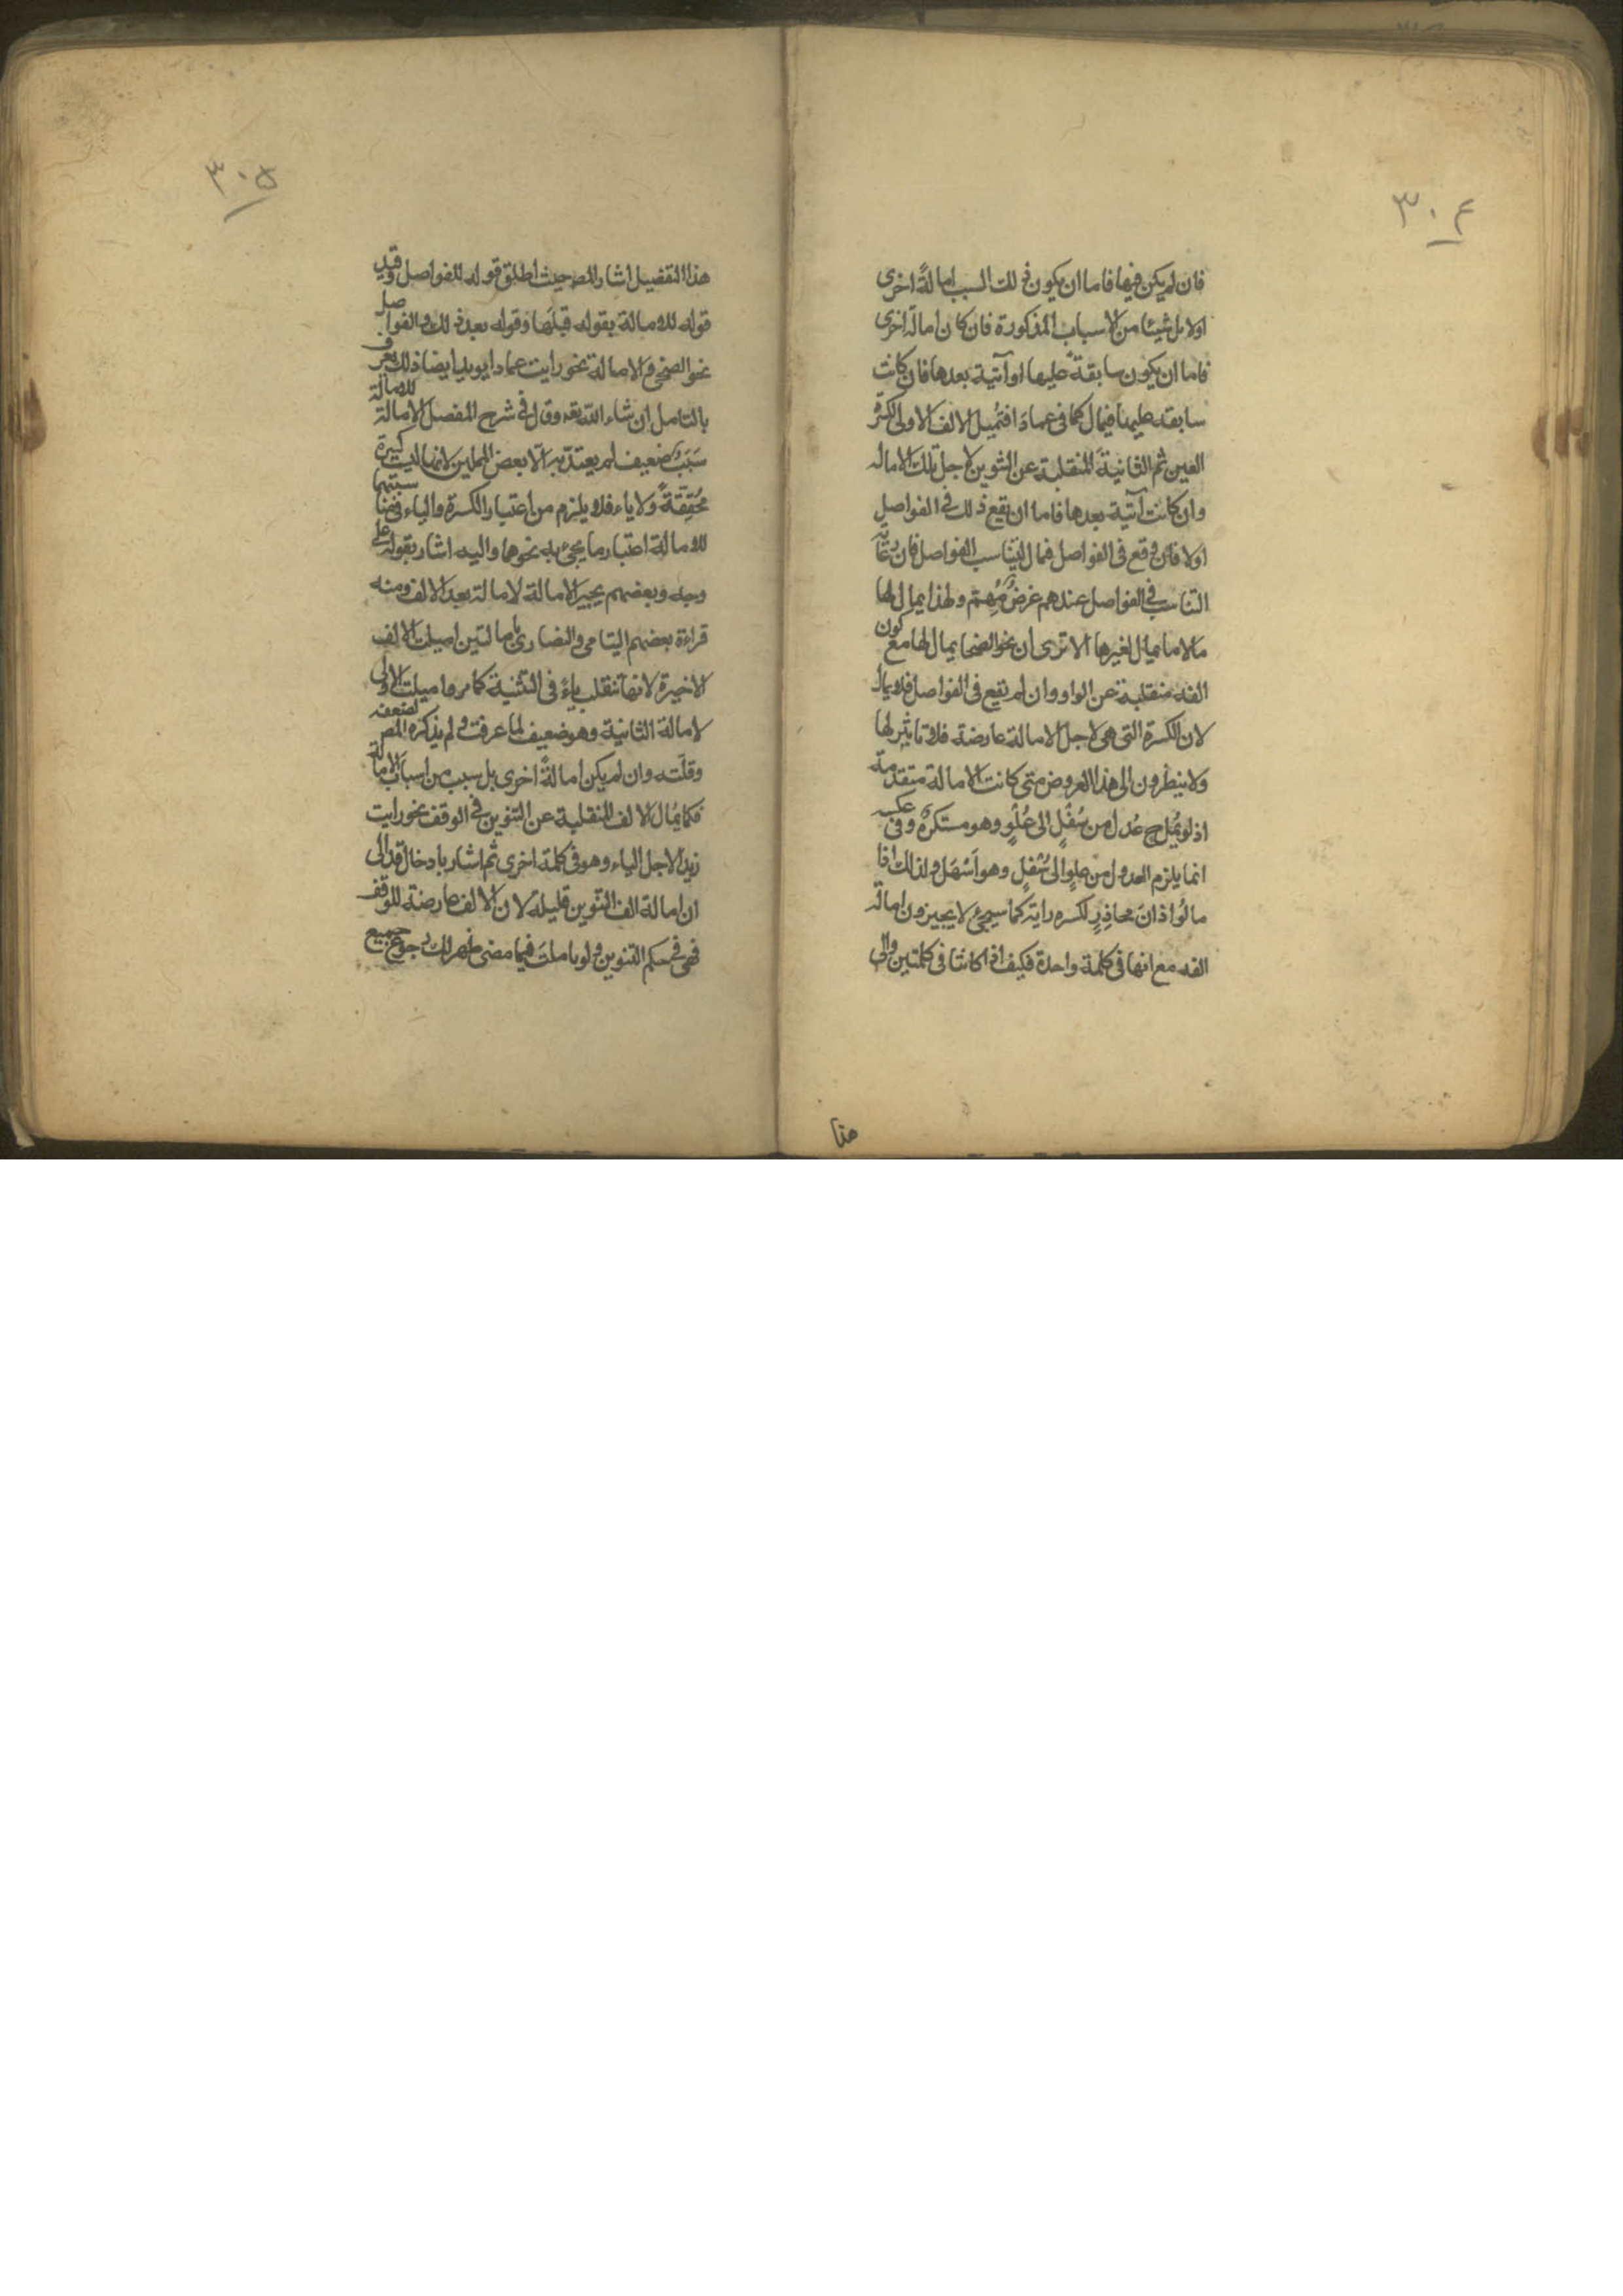 ٣٠٤
فان لم يكن فيها فاما ان يكون ذلك السبب امالةً اخرى
اولا بل شيئا من الاسباب المذكورة فان كان امالة اخرى
فاما ان يكون سابقة عليها او آتية بعدها فان كانت
سابقة عليها فيمال كما في عمادا فتميل الالف الاولى لكسرة
العين ثم الثانية المنقلبة عن التنوين لاجل تلك الامالة
وان كانت آتية بعدها فاما ان يقع ذلك في الفواصل
اولا فان وقع في الفواصل فيمال لتناسب الفواصل فان رعاية
التناسب في الفواصل عندهم غرض مهم ولهذا يمال لها
مالا يمال لغيرها الا ترى ان نحو الضحى يمال لها مع كون
الفه منقلبة عن الواو وان لم تقع في الفواصل فلا يمال
لان الكسرة التي هي لاجل الامالة عارضة فلا تاثير لها
ولا ينظرون الى هذا العروض متى كانت الامالة متقدمة
اذ لو يُمَل ح عُدل من سُفْلٍ الى عُلْوٍ وهو مستكره وفي عكسه
انما يلزم العدول من علوٍ الى سُفْلٍ وهو اَسْهَل ولذلك اذا
مالوا ذال محاذِرٍ لكسرة رايه كما سيجئ لا يجيزون امالة
الفه مع انها في كلمة واحدة فكيف اذا كانتا في كلمتين والى
هذا
٣٠٥
هذا التفصيل اشار المص حيث اطلق قوله للفواصل وقيد
قوله للامالة بقوله قبلها وقوله بعد ذلك والفواصل
نحو الضحى والامالة نحو رايت عمادا يؤيد ايضا ذلك يعرف
بالتامل ان شاء الله تعه وقال في شرح المفصل الامالة للامالة
سَبَبٌ ضعيف لم يعتد به الا بعض المميلين لانها ليست كسرة
مُحَقَّقَةً ولا ياء فلا يلزم من اعتبار الكسرة والياء في سببيتهما
للامالة اعتبار ما يجئ به نحوهما واليه اشار بقوله على
وجه وبعضهم يجيز الامالة لامالة بعد الالف ومنه
قراءة بعضهم اليتامى والنصارى بامالتين اميلت الالف
الاخيرة لانها تنقلب ياءً في التثنية كما مر واميلت الاولى
لامالة الثانية وهو ضعيف لما عرفت ولم يذكره المص لضعفه
وقلته وان لم يكن امالةً اخرى بل سبب من اسباب الامالة
فكما يُمال الالف المنقلبة عن التنوين في الوقف نحو رايت
زيدا لاجل الياء وهو في كلمة اخرى ثم اشار بادخال قد الى
ان امالة الف التنوين قليلة لان الالف عارضة للوقف
فهي في حكم التنوين ولو تاملت فيما مضى ظهر لك رجوع جميع